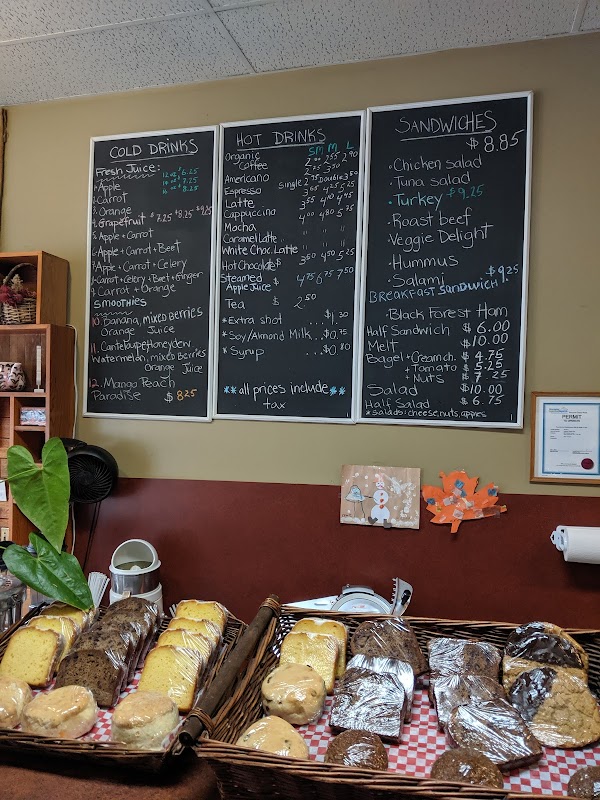 COLD DRINKS
Fresh Juice:
12 oz $ 6.25
14 oz $ 7.25
16 oz $ 8.25
Apple
Carrot
Orange
Grapefruit $ 7.25 $8.25 $9.25
Apple + Carrot
Apple + Carrot + Beet
Apple + Carrot + Celery
Carrot + Celery + Beet + Ginger
Carrot + Orange
SMOOTHIES
10. Banana, mixed berries
Orange Juice
11. Canteloupe, Honeydew,
Watermelon, mixed Berries
Orange Juice
12. Mango Peach
Paradise $ 8.25
HOT DRINKS
SM M L
Organic
Coffee 2.00 2.55 2.90
Americano
Espresso Single 2.75 Double 3.50
Latte
Cappuccino
Mocha
Caramel Latte
White Choc Latte
Hot Chocolate $ 3.50 4.50 5.25
Steamed
Apple Juice $ 4.75 6.75 7.50
Tea $ 2.50
* Extra shot ... $1.30
* Soy/Almond Milk .. $0.75
* Syrup ... $0.80
** all prices include **
tax
SANDWICHES
$ 8.85
• Chicken salad
• Tuna salad
• Turkey $9.25
• Roast beef
• Veggie Delight
• Hummus
• Salami $9.25
BREAKFAST SANDWICH
• Black Forest Ham
Half Sandwich $ 6.00
Melt $ 10.00
Bagel + Cream ch. $ 4.75
+ Tomato $ 5.25
+ Nuts $ 7.25
Salad $10.00
Half Salad $ 6.75
* salads: cheese, nuts, apples
PERMIT